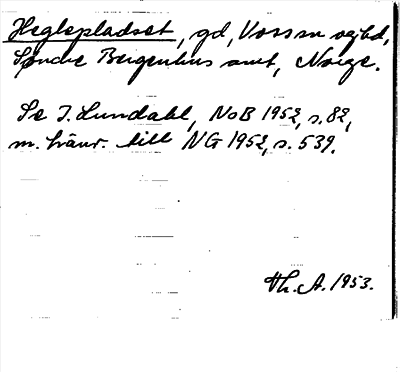 Heglepladset, gd, Voss sn og hd,
Søndre Bergenhus amt, Norge.
Se I. Lundahl, NoB 1952, s. 82,
m. hänv. till NG 1952, s. 539.
Th. A. 1953.